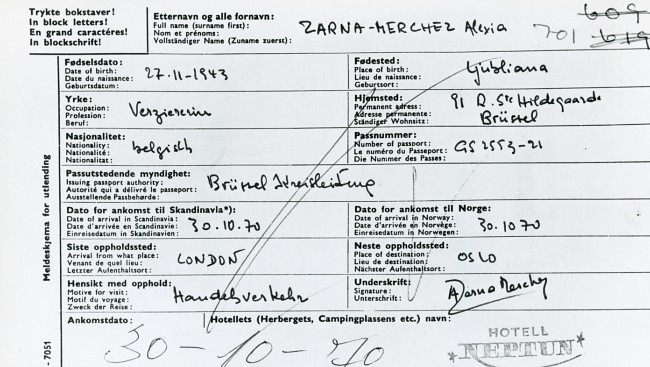 Trykte bokstaver!
In block letters!
En grand caractéres!
In blockschrift!
Etternavn og alle fornavn:
Full name (surname first):
Nom et prénoms:
Vollständiger Name (Zuname zuerst):
ZARNA-MERCHEZ Alexia
701
609
619
Fødselsdato:
Date of birth:
Date du naissance:
Geburtsdatum:
27.11-1943
Fødested:
Place of birth:
Lieu de naissance:
Geburtsort:
Ljubliana
Yrke:
Occupation:
Profession:
Beruf:
Verziererin
Hjemsted:
Permanent adress:
Adresse permanente:
Ständiger Wohnsitz:
91 R. Ste Hildegaarde
Brüssel
Nasjonalitet:
Nationality:
Nationalité:
Nationalitat:
belgisch
Passnummer:
Number of passport:
Le numéro du Passeport:
Die Nummer des Passes:
GS 2553-21
Passutstedende myndighet:
Issuing passport authority:
Autorité qui a délivré le passeport:
Ausstellende Passbehørde:
Brüssel Kreisleitung
Dato for ankomst til Skandinavia*):
Date of arrival in Scandinavia:
Date d'arrivée en Scandinavie:
Einreisedatum in Skandinavien:
30.10.70
Dato for ankomst til Norge:
Date of arrival in Norway:
Date d'arrivée en Norvège:
Einreisedatum in Norwegen:
30.10 70
Siste oppholdssted:
Arrival from what place:
Venant de quel lieu:
Letzter Aufenthaltsort:
LONDON
Neste oppholdssted:
Place of destination:
Lieu de destination:
Nächster Aufenthaltsort:
OSLO
Hensikt med opphold:
Motive for visit:
Motif du voyage:
Zweck der Reise:
Handelsverkehr
Underskrift:
Signature:
Unterschrift:
AZarna Merchez
Ankomstdato:
30-10-70
Hotellets (Herbergets, Campingplassens etc.) navn:
HOTELL
NEPTUN
Meldeskjema for utlending
- 7051